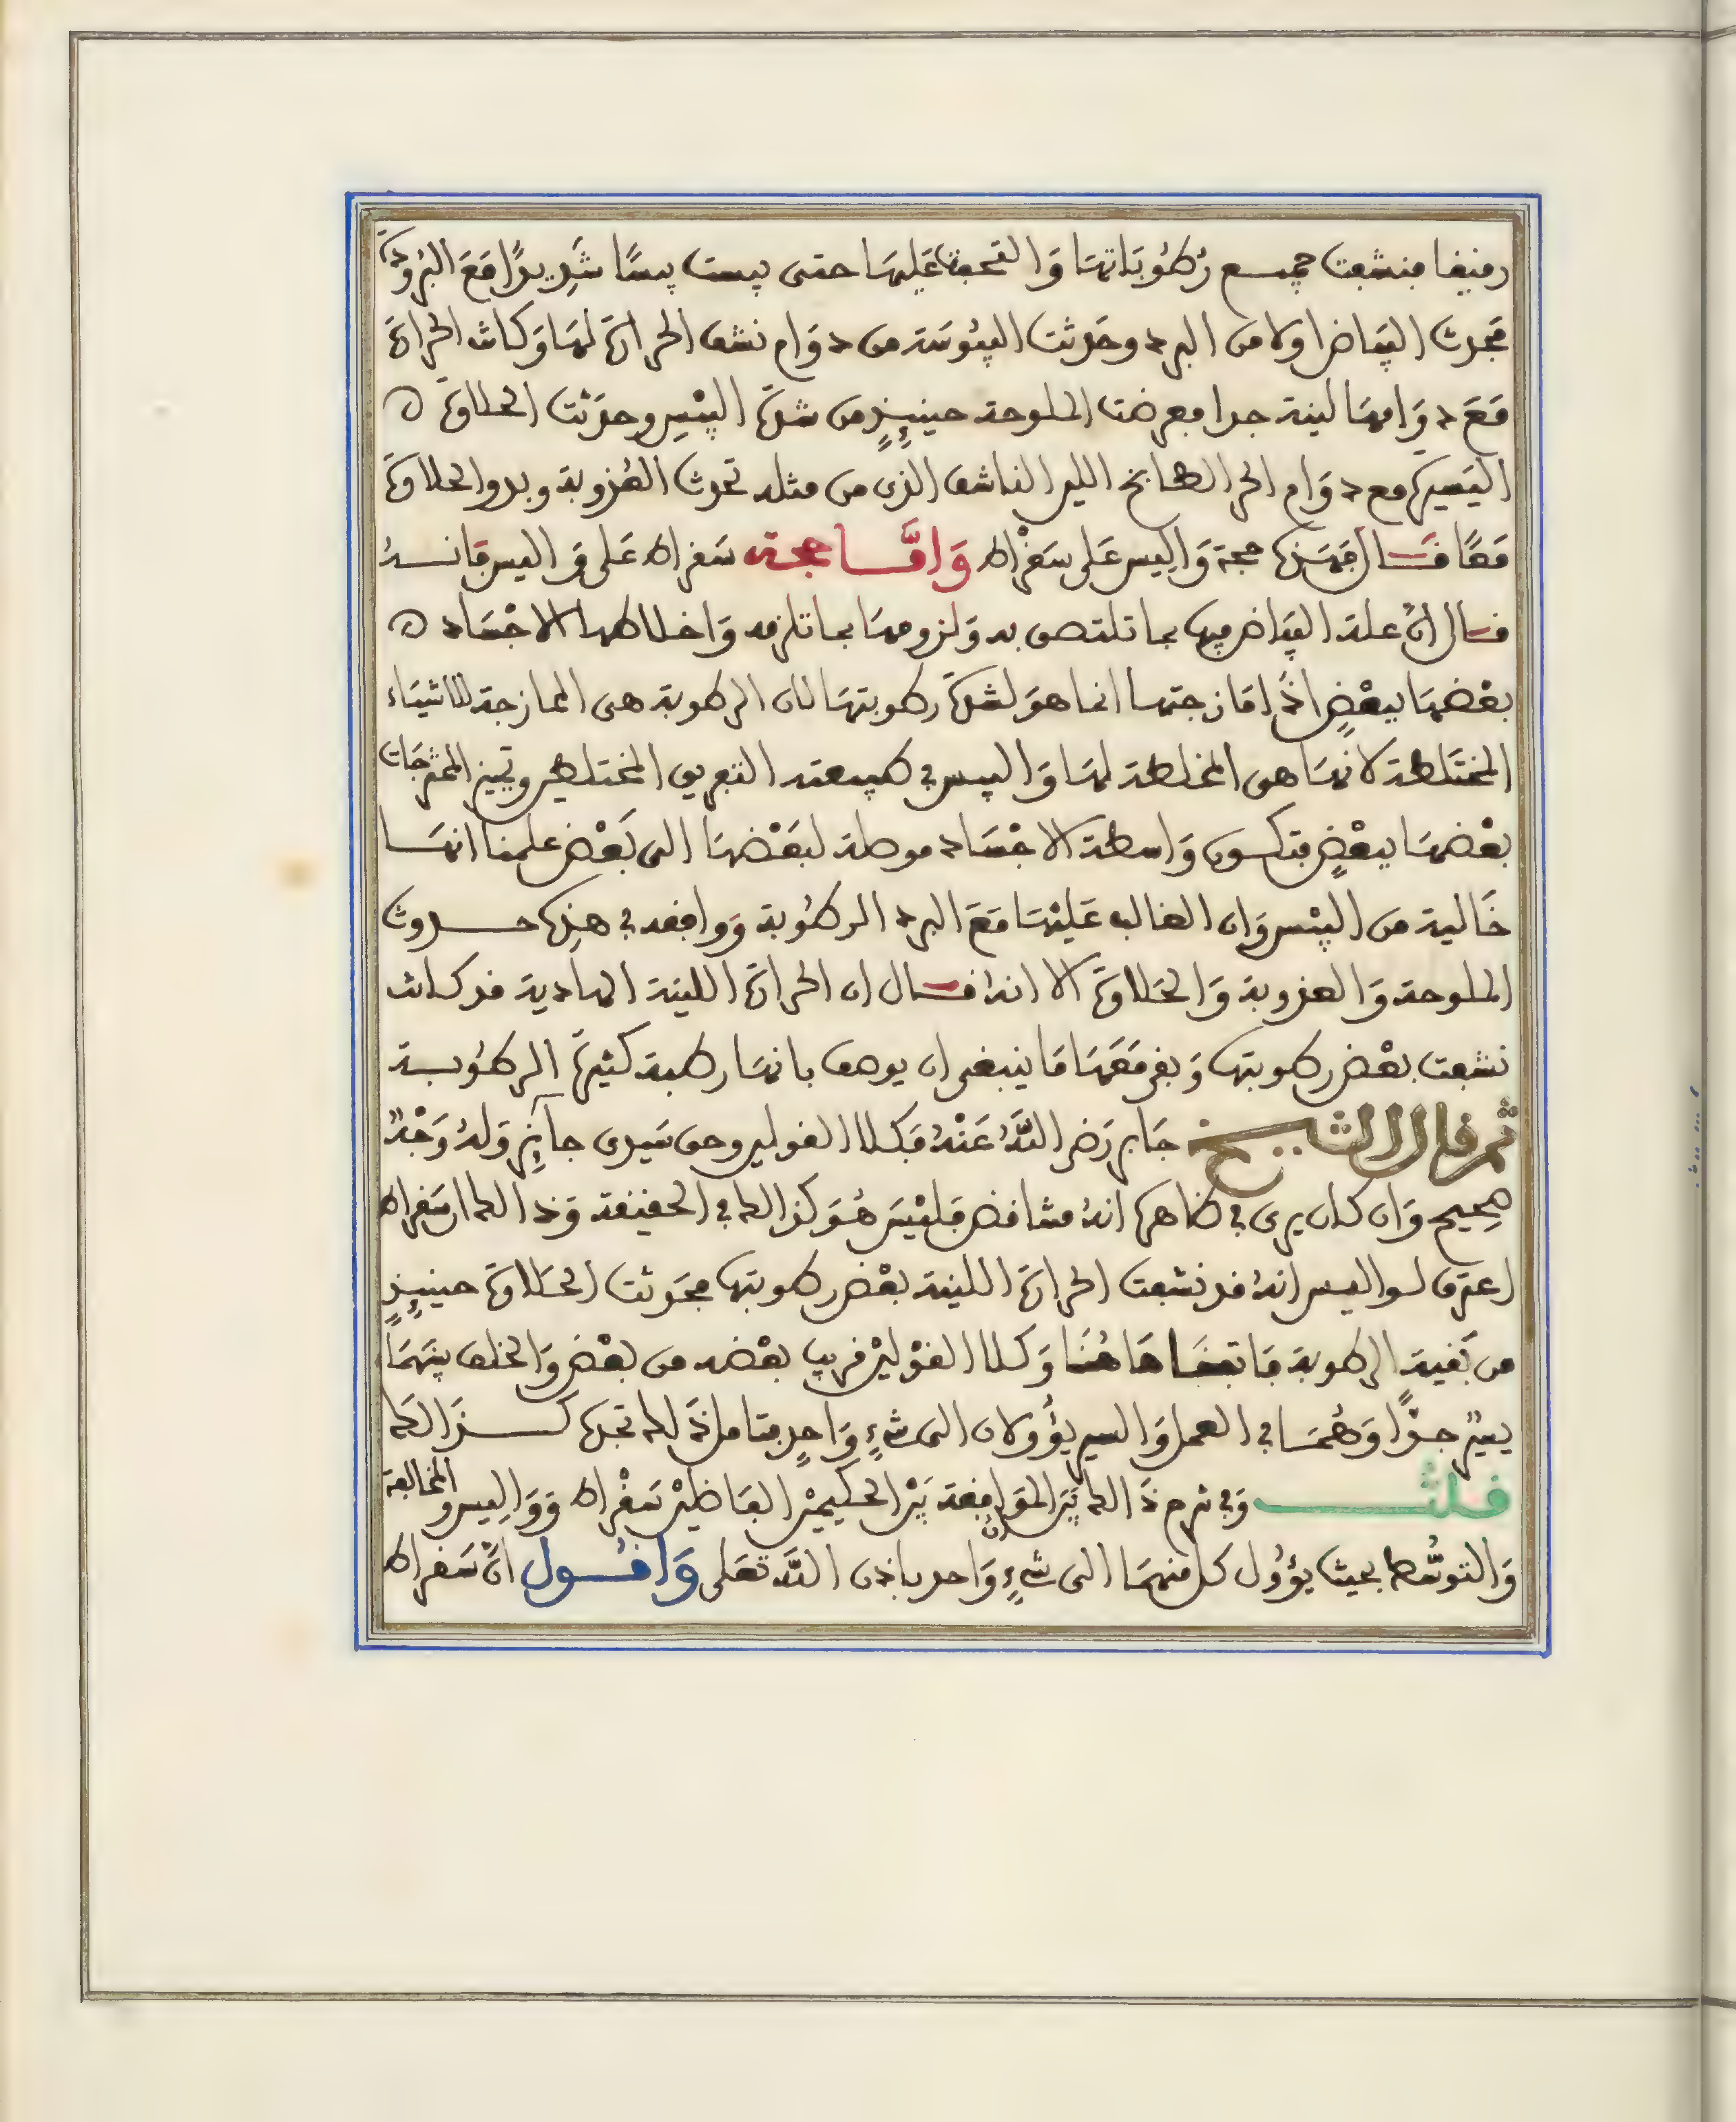 رفيفا فنشفت جميع رُطُوبَاتهَا وَالتحفت عَليهَا حتى يبست يبسًا شَدِيدًا مَعَ البُرُودَة
فحدث البيَاض اولا من البرد وحَدثت اليبُوسَة من دوَام نشف الحرارة لهَا وَكانت الحرارة
مَعَ دوَامهَا لينة جدا فعرضت الملوحة حينيِٕذٍ من شدة اليبْسِ وحدَثت الحلاوة ه
اليَسيرة مع دوَام الحر الطابخ اللين الناشف الذى من مثله تحدث العُذوبة وبدو الحلاوة
مَعًا قَال فهَذه حجة وَالِيس عَلى سَقْراط وَامَّا حجة سَقراط عَلى وَاليس فانهُ
قال انَّ علة البيَاض فيها بما تلتصق به وَلزومهَا بما تلزمه وَاخلاطها الاجْسَاد ه
بعْضهَا ببعْضٍ اذا مَازجتها انما هوَ لشدة رطوبتهَا لان الرطوبة هى الممازجة للاشيَاء
المختَلطة لانهَا هى المخلطة لهَا وَاليبس في طبيعته التفريق المختلطين وتمييز الممتزجَات
بعْضهَا ببعْضٍ فتكون وَاسطة الاجْسَاد موصلة لبَعْضهَا الى بَعْض علمنا انهَا
خَالية من اليبْس وَان الغالب عَليْهَا مَعَ البرد الرطُوبة وَوافقه في هذِه حدوث
الملوحة وَالعذوبة وَالحَلاوة الا انه قال ان الحرارة اللينة الهادية قد كانت
نشفت بعْض رطوبتها وَبقى مَعَهَا مَا ينبغى ان يوصف بانهَا رطبة كثيرة الرطُوبة
ثم قال الشيخ جَابر رَضى اللَّهُ عَنْهُ فكلا القولين وحق سَيدى جآيِز وَلهُ وَجْهٌ
صحِيح وَان كان يرى في ظاهره انهُ متناقض فليْسَ هُوَ كذالك في الحقيقة وَذالك ان سَقراط
اعترف لواليس انهُ قد نشفت الحرارة اللينة بعْض رطوبتها فحَدثت الحَلاوة حينيِٕذٍ
من بَقية الرطوبة فاتفقَا هَاهُنَا وَكلا القوْليْن قريب بعْضه من بعْض وَالخلف بينهمَا
يسيرٌ جدًّا وَهُمَا في العمل وَالسير يؤُولان الى شىءٍ وَاحِدٍ فتامل ذَلك تجده كذَالك
قلت وَفي شرح ذَالك بَيَن الموَافقة بَيْن الحكيميْن الفَاضليْن سَقْراط وَوَالِيس وَالمخالفة
وَالتوسُّط بحيث يؤُول كل منهمَا الى شىءٍ وَاحد باذن اللَّه تعَلى وَاقُول انَّ سَقراط